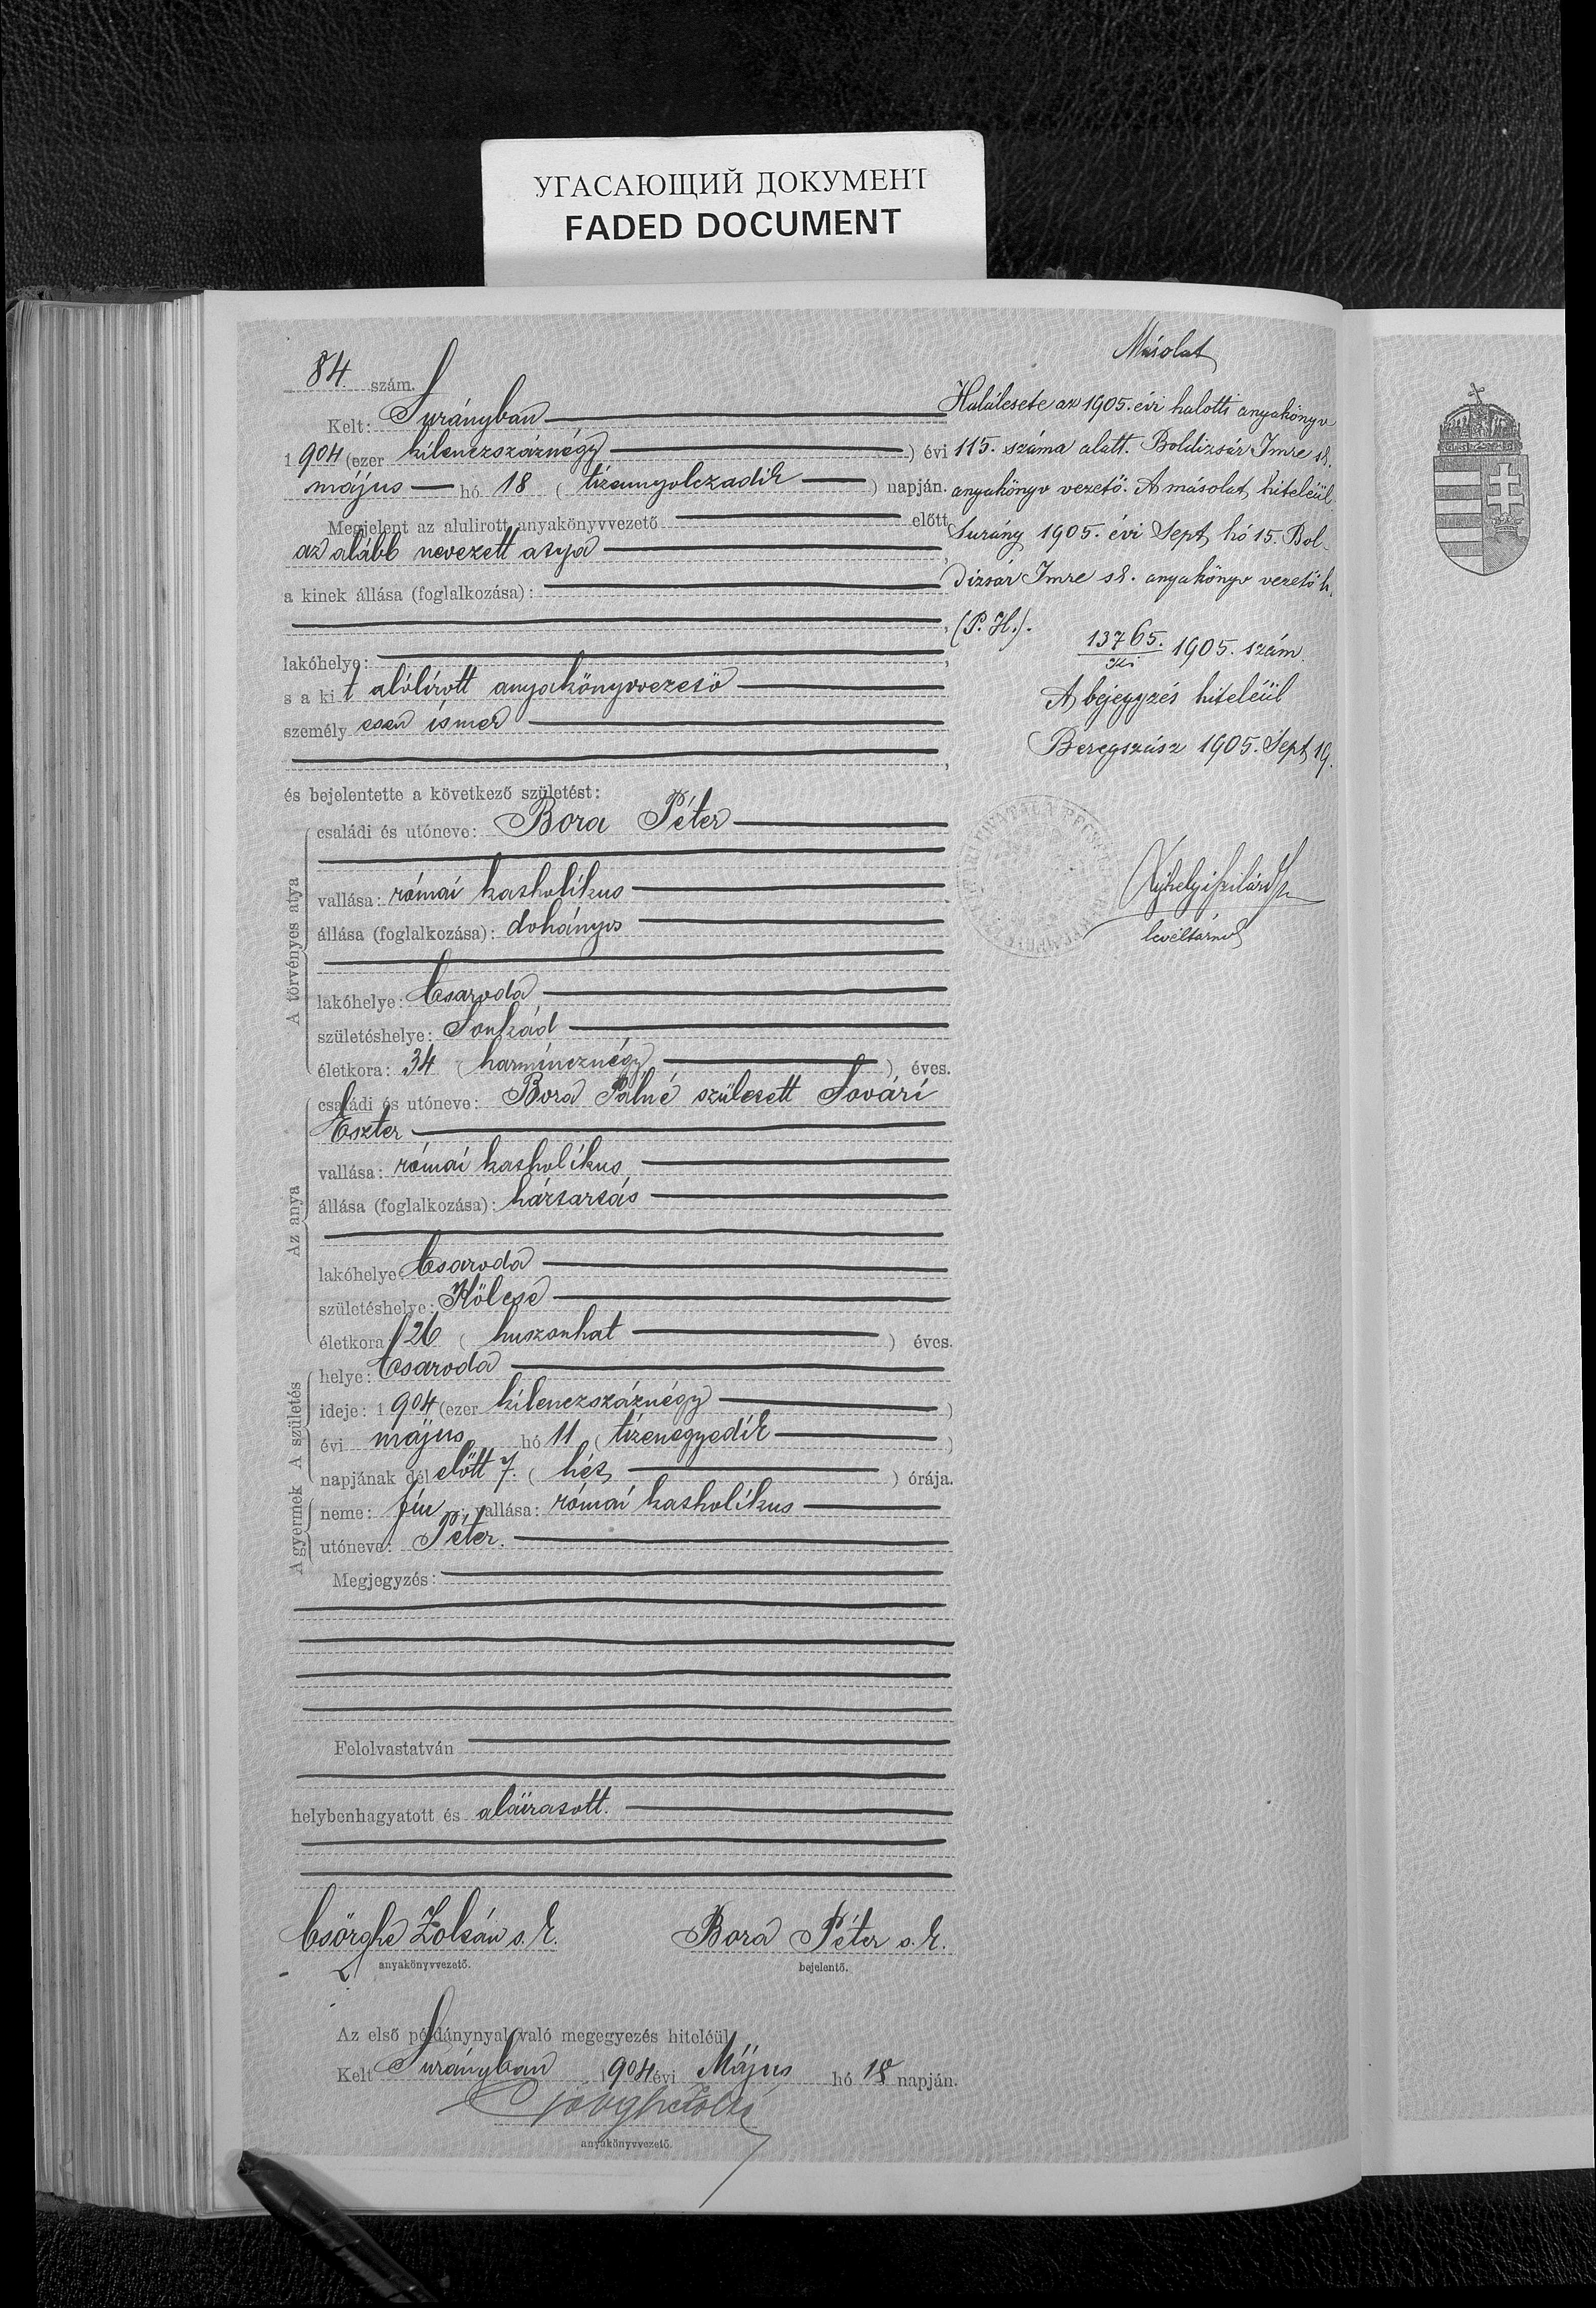 УГАСАЮЩИЙ ДОКУМЕНТ
FADED DOCUMENT
84. szám.
Kelt: Surányban
1904 (ezer kilenczszáznégy) évi
május hó 18 (tizennyolczadik) napján.
Megjelent az alulirott anyakönyvvezető előtt
az alább nevezett atya,
a kinek állása (foglalkozása):
,
lakóhelye: ,
s a kit alólírott anyakönyvvezető
személyesen ismer
,
és bejelentette a következő születést:
A törvényes atya
családi és utóneve: Bora Péter
vallása: római katholikus
állása (foglalkozása): dohányos
lakóhelye: Csaroda
születéshelye: Sonkád
életkora: 34 (harmincznégy) éves.
Az anya
családi és utóneve: Bora Pálné született Sovári
Eszter
vallása: római katholikus
állása (foglalkozása): háztartás
lakóhelye: Csaroda
születéshelye: Kölcse
életkora: 26 (huszonhat) éves.
A születés
helye: Csaroda
ideje: 1904 (ezer kilenczszáznégy)
évi május hó 11 (tizenegyedik)
napjának dél előtt 7. (hét) órája.
A gyermek
neme: fiu; vallása: római katholikus
utóneve: Péter.
Megjegyzés:
Felolvastatván
helybenhagyatott és aláíratott.
Csörghe Zoltán s. k. Bora Péter s. k.
anyakönyvvezető. bejelentő.
Az első példánynyal való megegyezés hiteléül
Kelt Surányban 1904 évi Május hó 18 napján.
Csörghe Zoltán
anyakönyvvezető.
Másolat
Halálesete az 1905. évi halotti anyakönyv
115. száma alatt. Boldizsár Imre sk.
anyakönyv vezető. A másolat hiteléül
Surány 1905. évi Sept hó 15. Bol-
dizsár Imre sk. anyakönyv vezető h.
(P. H.).
13765. 1905. szám.
A bejegyzés hiteléül
Beregszász 1905. Sept 19.
Ujhelyi Szilárd
levéltárnok